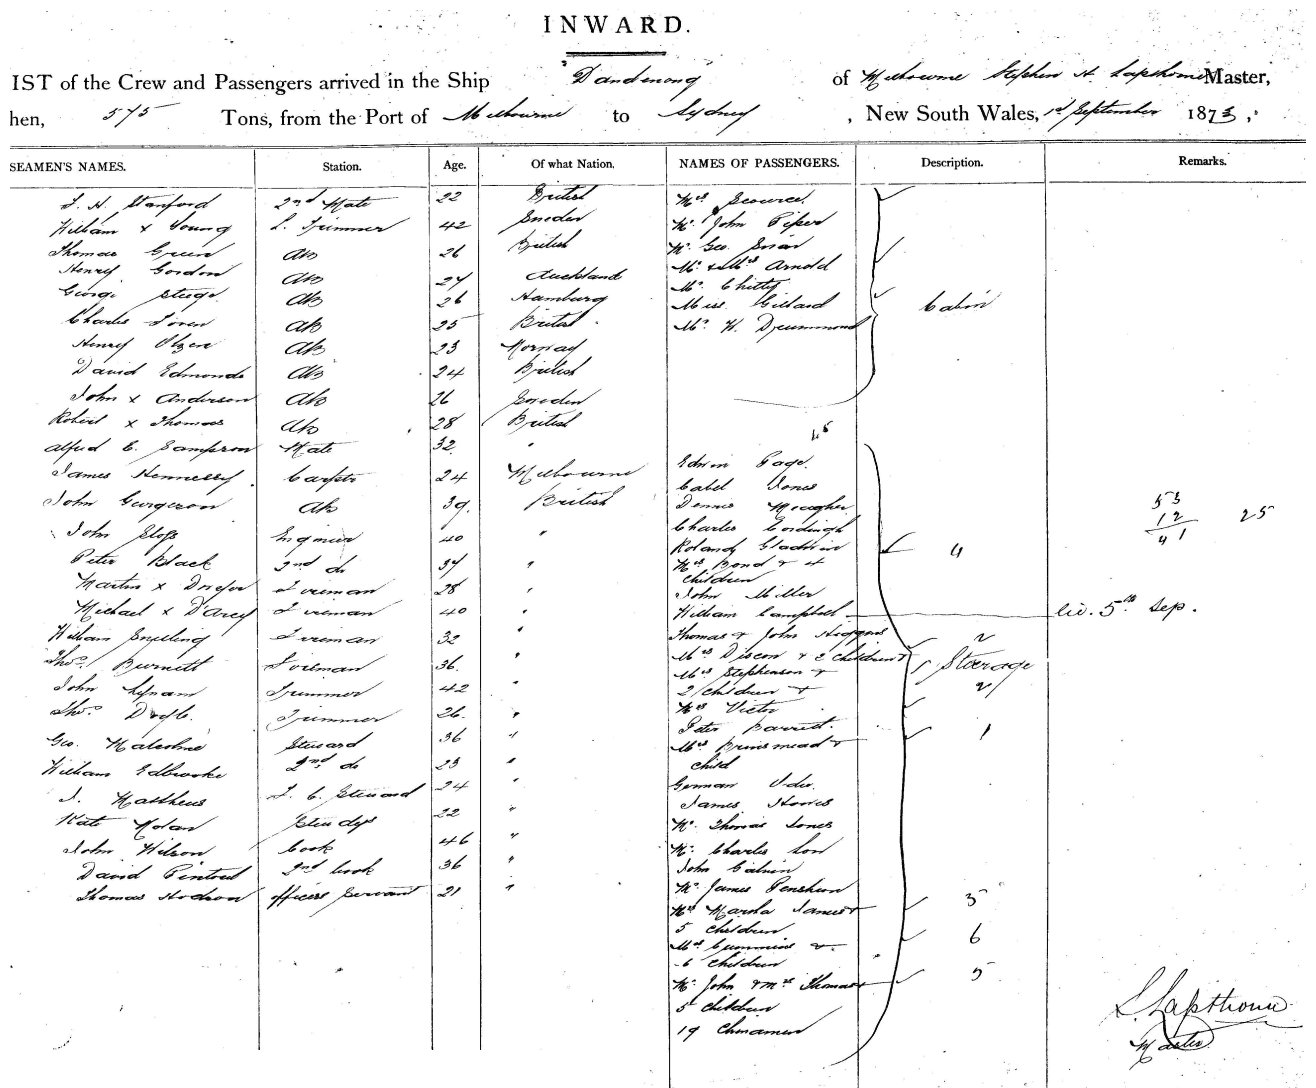 INWARD.
IST of the Crew and Passengers arrived in the Ship "Dandenong" of Melbourne Stephen H Lapthorne Master,
hen, 575 Tons, from the Port of Melbourne to Sydney, New South Wales, 1st September 1873,
SEAMEN'S NAMES. Station. Age. Of what Nation. NAMES OF PASSENGERS. Description. Remarks.
J. H. Stanford 2nd Mate 22 British
William x Young L. Trimmer 42 Sweden
Thomas Green AB 26 British
Henry Gordon AB 27 Auckland
George AB 26 Hamburg
Charles AB 25 British
Henry Olzen AB 23 Norway
David Edmonds AB 24 British
John x Anderson AB 26 Sweden
Robert x Thomas AB 28 British
Alfred E. Sampson Mate 32 "
James Hennessy Carptr 24 Melbourne
John AB 39 British
John Engineer 40 "
Peter Black 2nd do 37 "
Martin x Fireman 28 "
Michael x D'Arcy Fireman 40 "
William Snelling Fireman 32 "
Thos. Burnett Fireman 36 "
John Lynam Trimmer 42 "
Thos. Doyle Trimmer 26 "
Geo. Malcolme Steward 36 "
William Edbrooke 2nd do 23 "
J. Matthews S. C. Steward 24 "
Kate Nolan Stewdss 22 "
John Wilson Cook 46 "
David 2nd Cook 36 "
Thomas Hodson Officers Servant 21 "
Mrs
Mr. John Piper
Mr. Geo.
Mr. & Mrs Arnold
Mr. Chitty
Miss Gillard
Mr. W. Drummond
Cabin
45
Edwin Page
Jones
Dennis Meagher
Charles
Roland Gladwin
Mrs Bond & 4 4
children
John Miller
William Campbell lid. 5th Sep.
Thomas & John Higgins
Mrs Dixon & 2 children & 2
Mrs Stephenson & Steerage
2 children & 2
Mrs Victor
Peter Barrett
Mrs Brinsmead & 1
child
German
James Howes
Mr. Thomas Jones
Mr. Charles
John Galvin
Mr. James Penshurn
Mrs James & 5
5 children
Mrs Cummins & 6
6 children
Mr. John & Mrs Thomas & 5
5 children
19 Chinamen
53
12
41
25
S. Lapthorne
Master